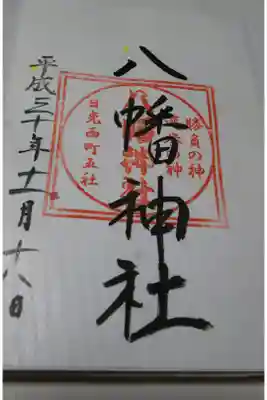 勝負の神
の神
八幡神社
八幡神社
日光西町五社
平成三十年十一月十八日